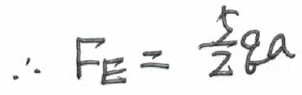 ∴ F_E = \frac{5}{2}qa